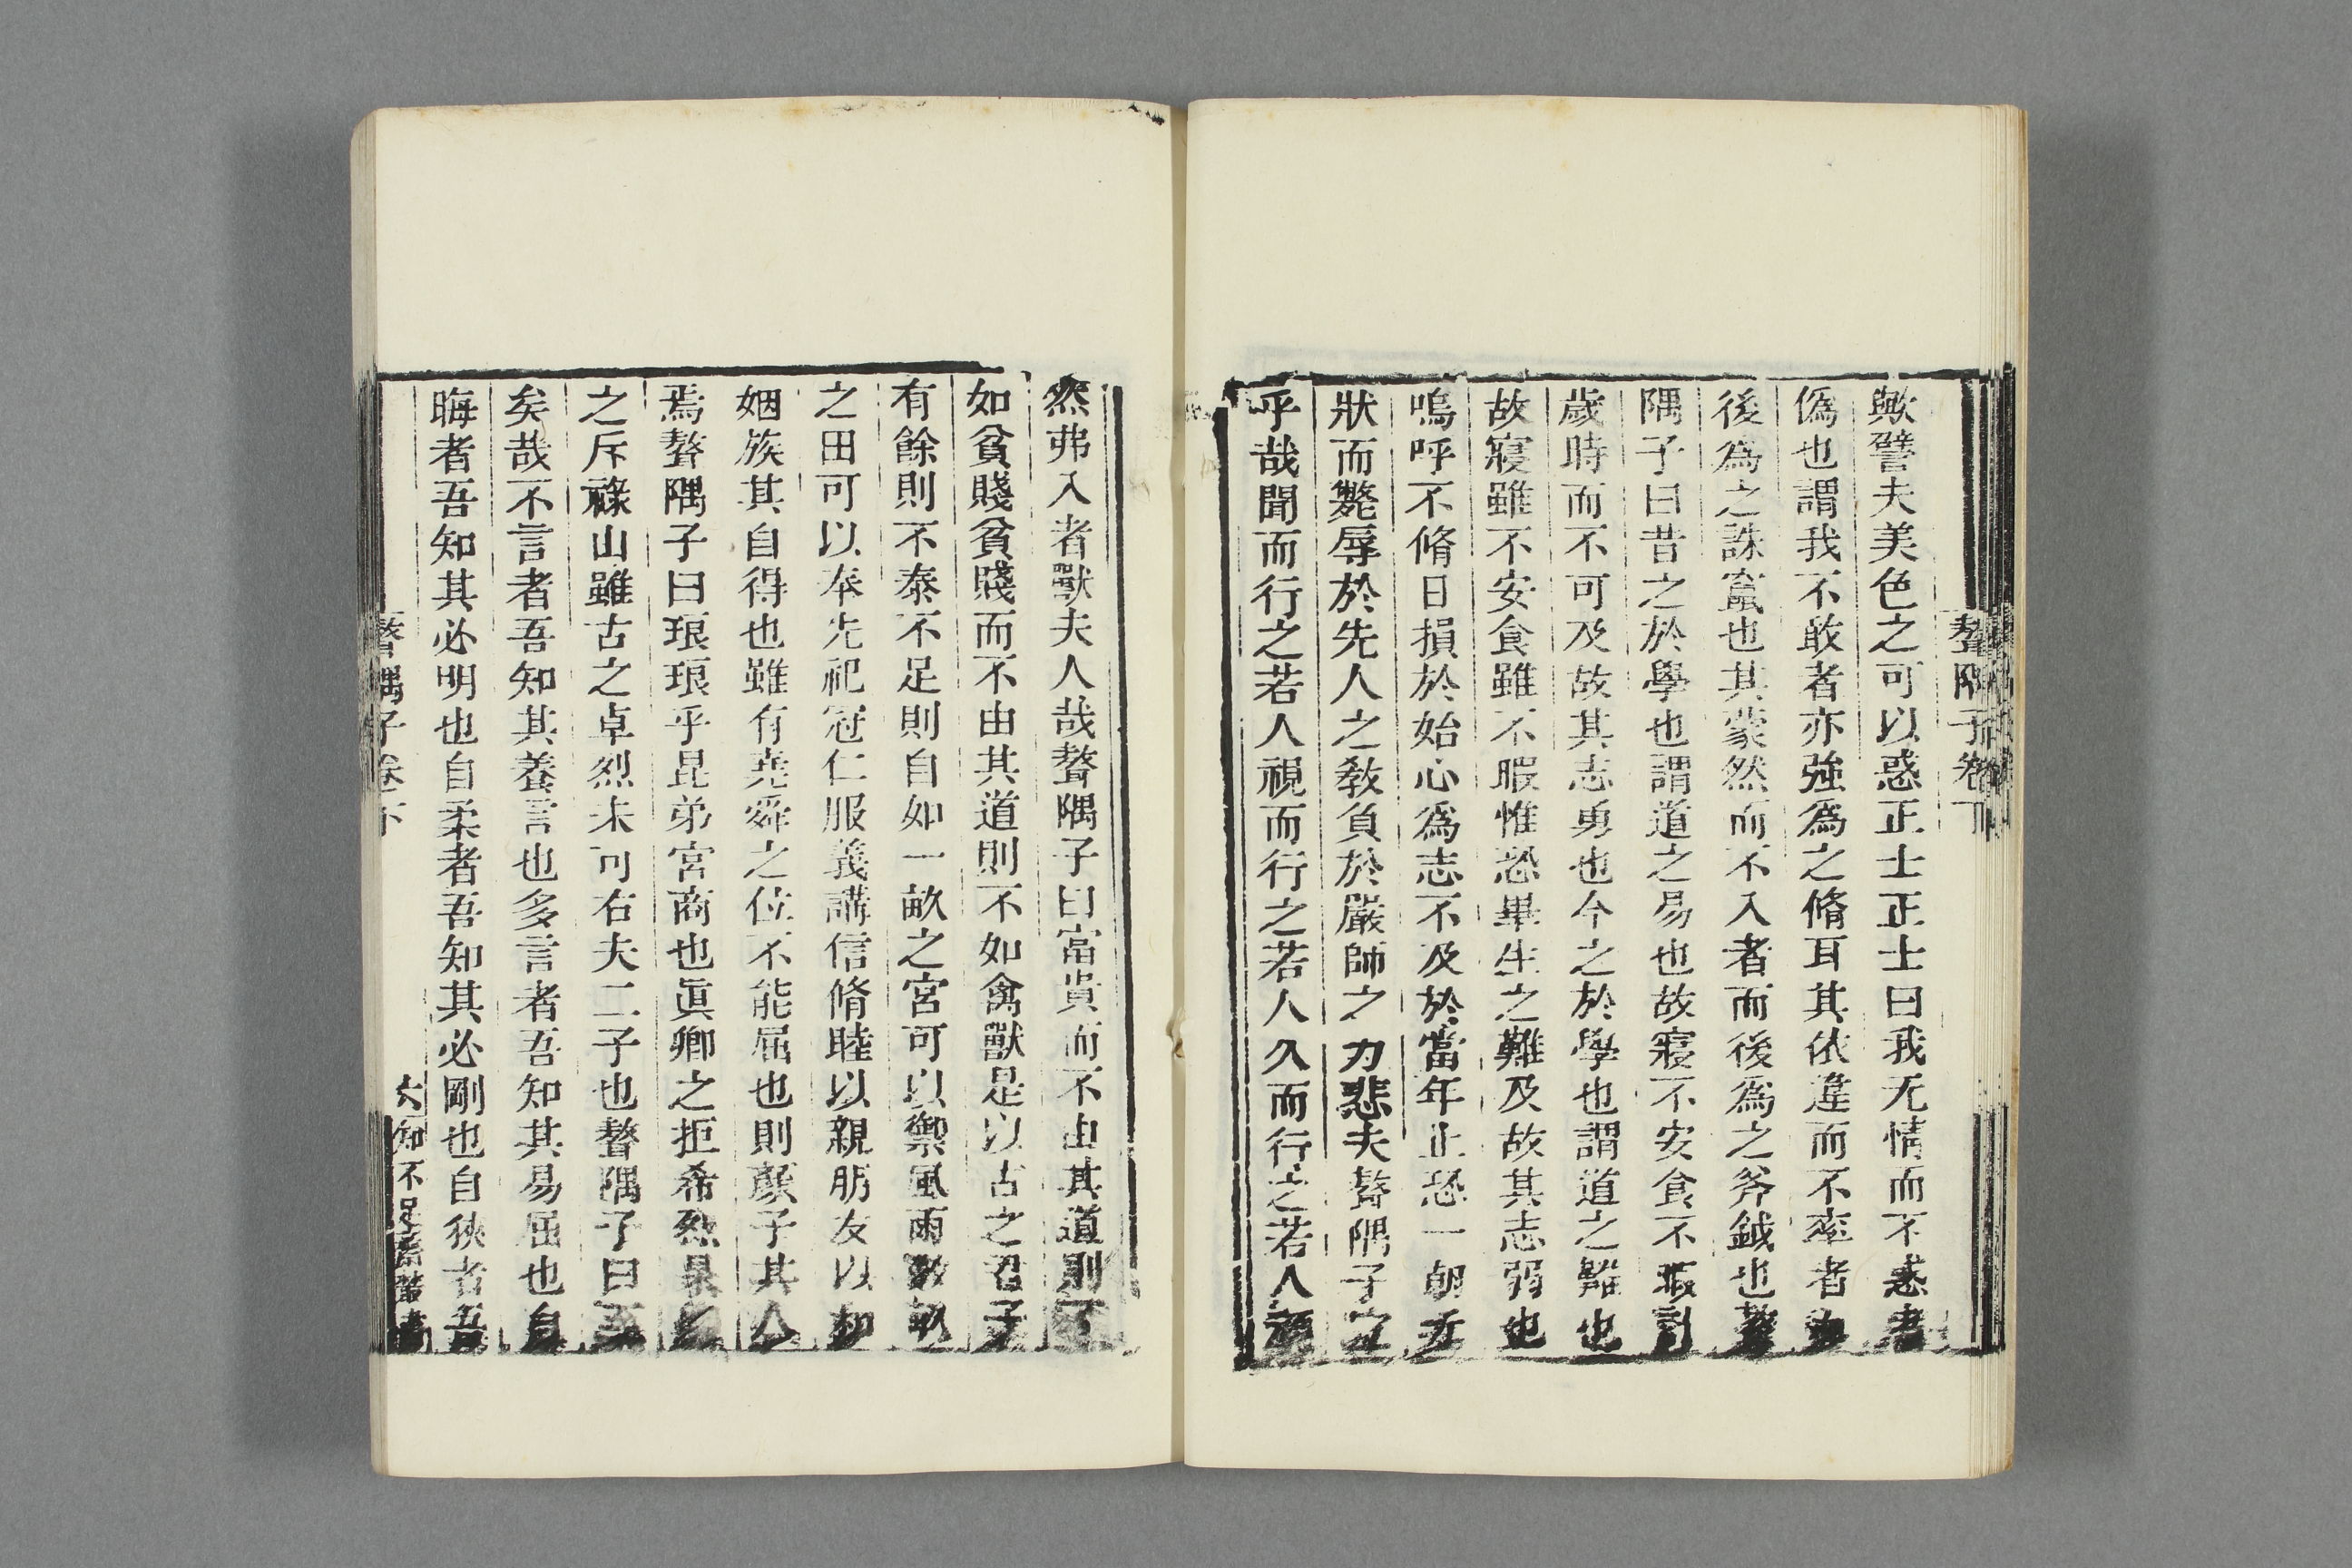 歟譬夫美色之可以惑正士正士曰我无情而不惑者
偽也謂我不敢者亦強為之脩耳其依違而不率者
後為之誅竄也其蒙然而不入者而後為之斧鉞也聱
隅子曰昔之於學也謂道之易也故寢不安食不暇
歲時而不可及故其志勇也今之於學也謂道之
也
故寢雖不安食雖不暇惟恐畢生之難及故其志弱也
嗚呼不脩日損於始心為志不及於當年止恐一朝
狀而斃辱於先人之教負於嚴師之力悲夫聱隅子之
呼哉聞而行之若人視而行之若人久而行之若人
聱隅子卷下
然弗入者獸夫人哉聱隅子曰富貴而不由其道則
如貧賤貧賤而不由其道則不如禽獸是以古之君子
有餘則不泰不足則自如一畝之宮可以禦風雨數
之田可以奉先祀冠仁服義講信脩睦以親朋友以和
姻族其自得也雖有堯舜之位不能屈也則顏子其人
焉聱隅子曰琅琅乎昆弟宮商也眞卿之拒希烈杲
之斥祿山雖古之卓烈未可右夫二子也聱隅子曰
矣哉不言者吾知其養言也多言者吾知其易屈也自
晦者吾知其必明也自柔者吾知其必剛也自狹者吾
聱隅子卷下
六 知不足齋叢書